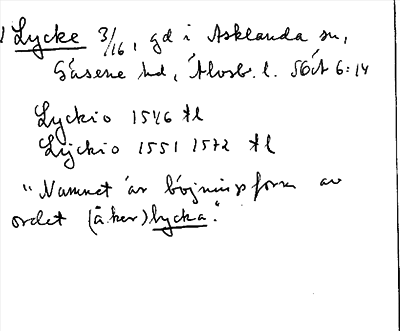 Lycke 3/16, gd i Asklanda sn,
Gäsene hd, Älvsb. l. SOÄ 6:14
Lyckio 1546 tl
Lyckio 1551 1572 tl
"Namnet är böjningsform av
ordet (åker)lycka".